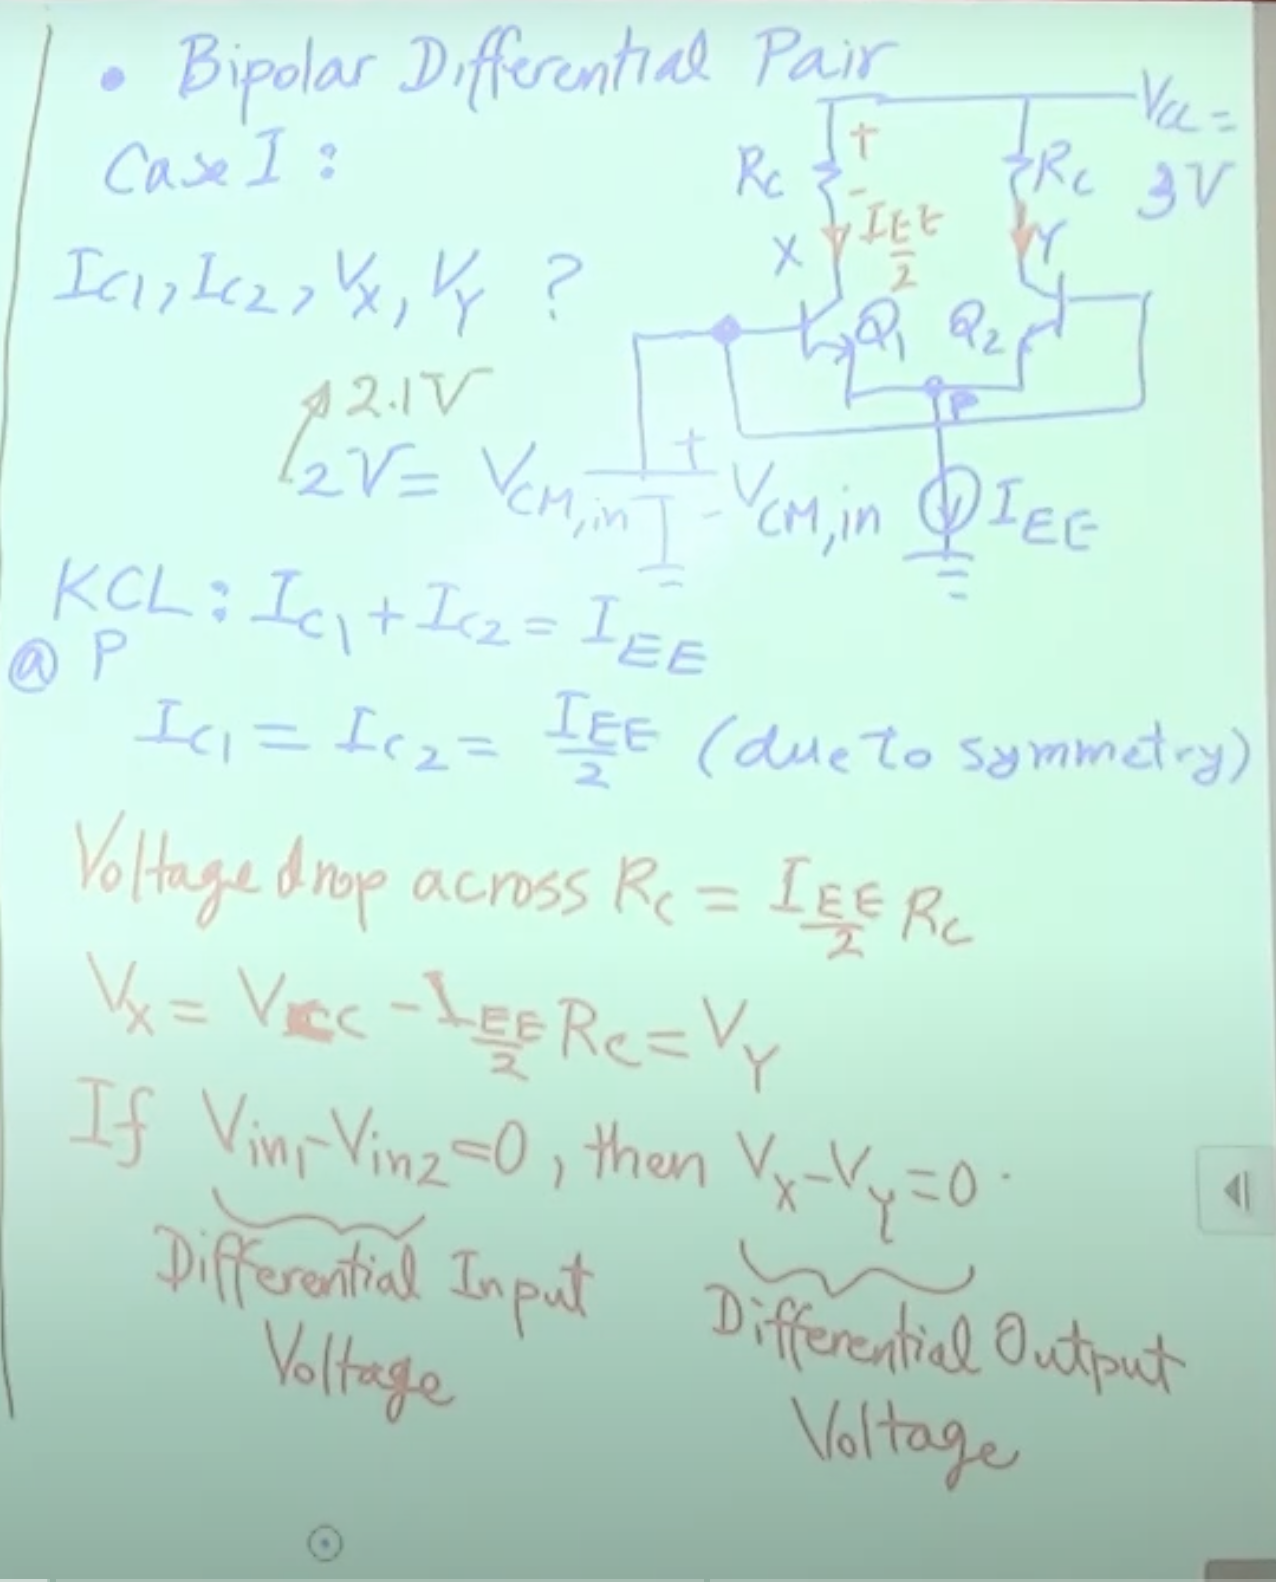 • Bipolar Differential Pair
Case I :
IC1, IC2, VX, VY ?
VCC = 3V
RC
+
-
RC
IEE/2
X
Y
Q1
Q2
P
2.1V
2V = VCM,in
+
-
VCM,in
IEE
KCL : IC1 + IC2 = IEE
@ P
IC1 = IC2 = IEE/2 (due to symmetry)
Voltage drop across RC = IEE/2 RC
VX = VCC - IEE/2 RC = VY
If Vin1 - Vin2 = 0, then VX - VY = 0 .
Differential Input Voltage
Differential Output Voltage